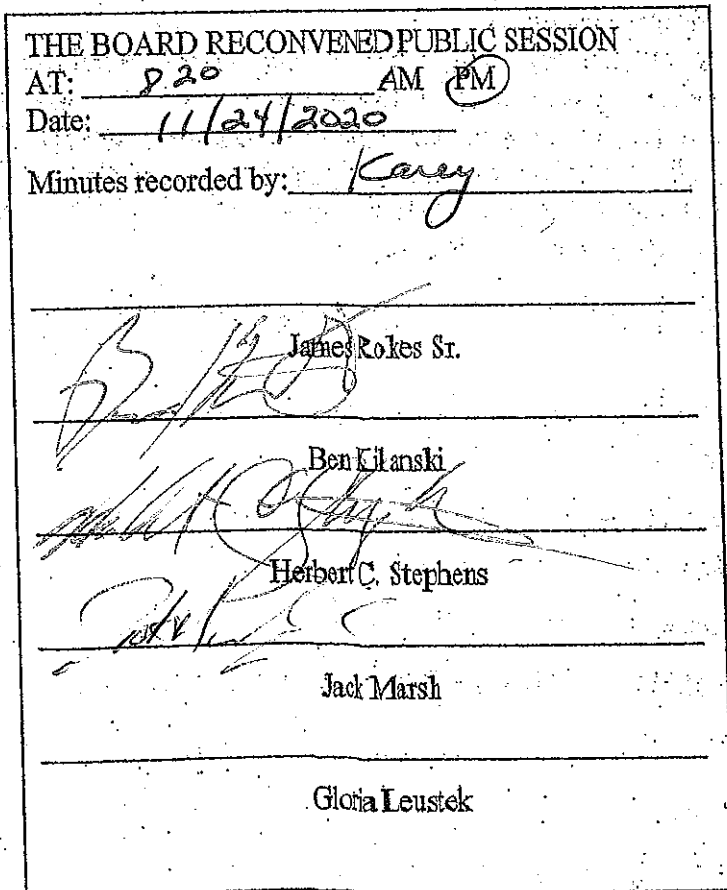 THE BOARD RECONVENED PUBLIC SESSION
AT: 8 20 AM PM
Date: 11/24/2020
Minutes recorded by: Karey
James Rokes Sr.
Ben Kilanski
Herbert C. Stephens
Jack Marsh
Gloria Leustek